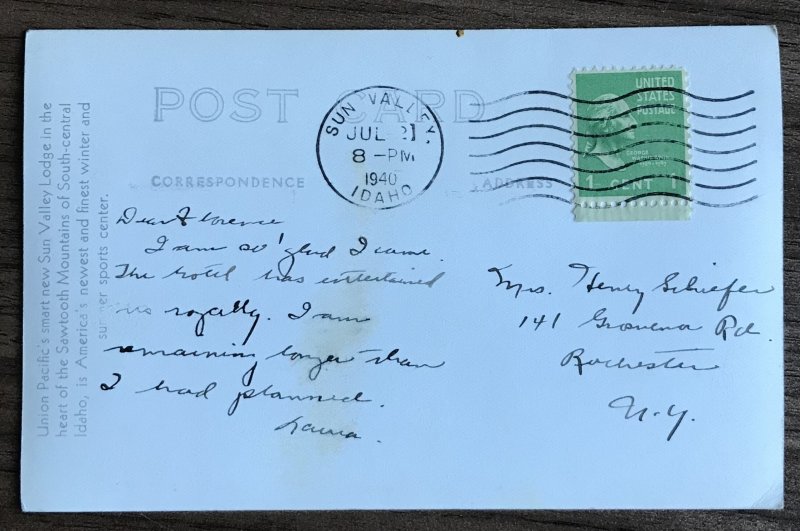 Union Pacific's smart new Sun Valley Lodge in the
heart of the Sawtooth Mountains of South-central
Idaho, is America's newest and finest winter and
summer sports center.
POST CARD
CORRESPONDENCE
ADDRESS
SUN VALLEY,
JUL 21
8 - PM
1940
IDAHO
UNITED
STATES
POSTAGE
GEORGE
WASHINGTON
1 CENT 1
Dear Florence
I am so glad I came.
The hotel has entertained
us royally. I am
remaining longer than
I had planned.
Laura.
Mrs. Henry Schiefer
141 Grosvenor Rd.
Rochester
N.Y.